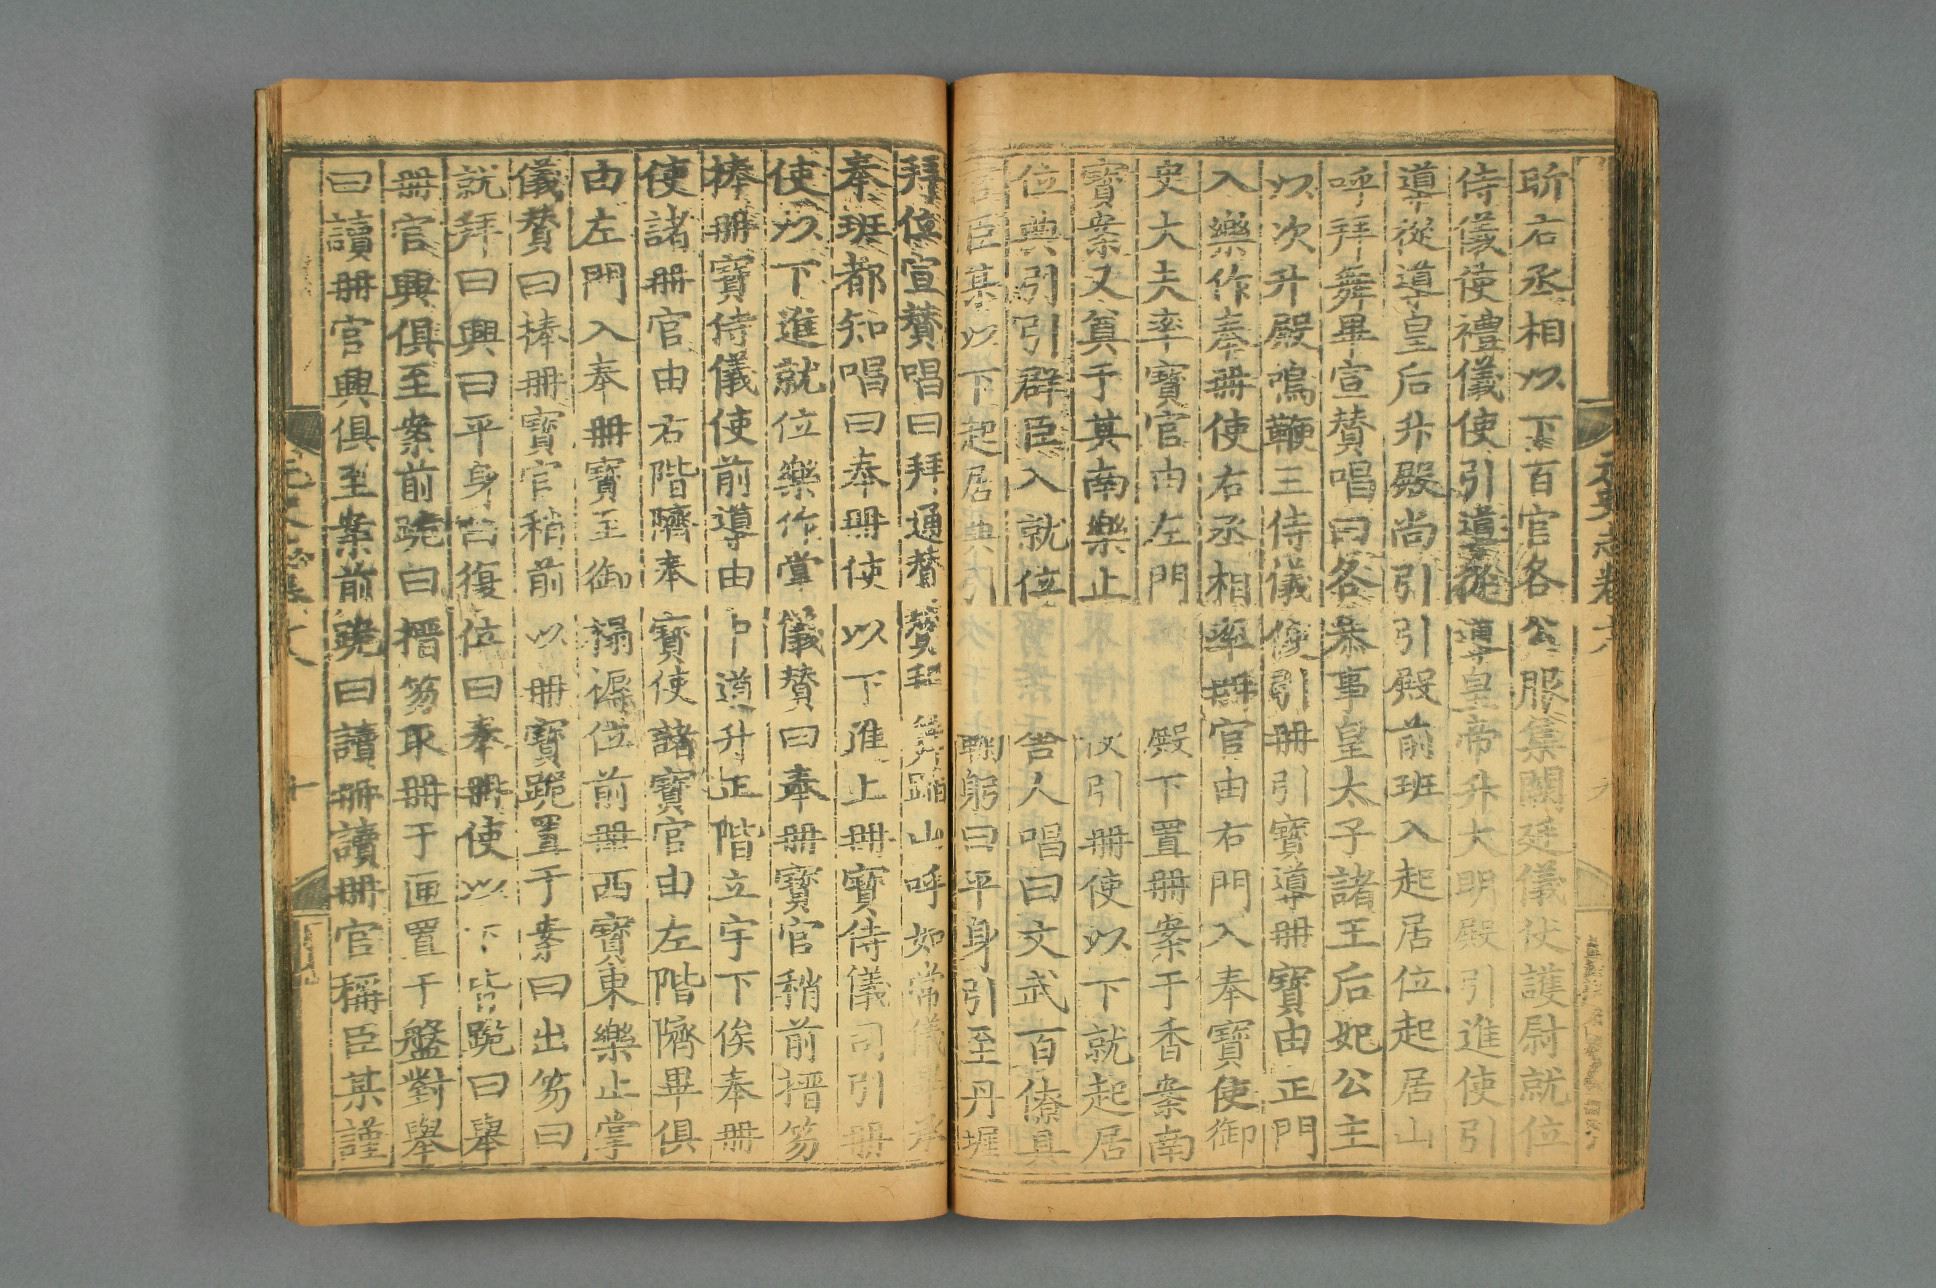 元史志卷十八
九
所右丞相以下百官各公服集闕廷儀仗護尉就位
侍儀使禮儀使引導從導皇帝升大明殿引進使引
導從導皇后升殿尚引引殿前班入起居位起居山
呼拜舞畢宣賛唱曰各恭事皇太子諸王后妃公主
以次升殿鳴鞭三侍儀使引冊引寶導冊寶由正門
入樂作奉冊使右丞相率冊官由右門入奉寶使御
史大夫率寶官由左門 殿下置冊案于香案南
寶案又窴于其南樂止 引冊使以下就起居
位典引引群臣入就位 舍人唱曰文武百僚具
官臣某以下起居典引 鞠躬曰平身引至丹墀
拜位宣賛唱曰拜通賛賛拜舞蹈山呼如常儀
奉班都知唱曰奉冊使以下進上冊寶侍儀司引冊
使以下進就位樂作掌儀賛曰奉冊寶官稍前搢笏
捧冊寶侍儀使前導由中道升正階立宇下俟奉冊
使諸冊官由右階隮奉寶使諸寶官由左階隮畢俱
由左門入奉冊寶至御榻褥位前冊西寶東樂止掌
儀賛曰捧冊寶官稍前以冊寶跪置于案曰出笏曰
就拜曰興曰平身曰復位曰奉冊使以下皆跪曰舉
冊官興俱至案前跪曰搢笏取冊于匣置于盤對舉
曰讀冊官興俱至案前跪曰讀冊讀冊官稱臣某謹
十